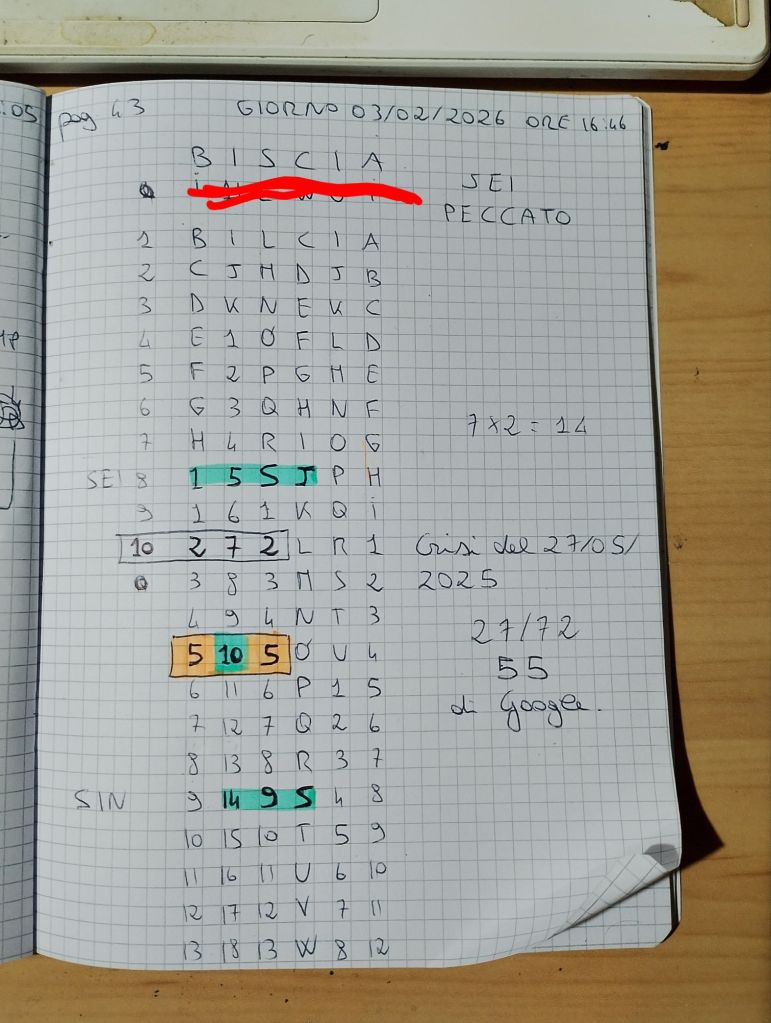 :05
pag 43 GIORNO 03/02/2026 ORE 16:46
B I S C I A
SEI
PECCATO
1 B I L C I A
2 C J M D J B
3 D K N E K C
4 E 1 O F L D
5 F 2 P G M E
6 G 3 Q H N F
7 H 4 R I O G
7 x 2 = 14
SEI 8 1 5 S J P H
9 1 6 1 K Q i
10 2 7 2 L R 1 Crisi del 27/05/
3 8 3 M S 2 2025
4 9 4 N T 3
27/72
5 10 5 O U 4
55
6 11 6 P 1 5
di Google.
7 12 7 Q 2 6
8 13 8 R 3 7
SIN 9 14 9 S 4 8
10 15 10 T 5 9
11 16 11 U 6 10
12 17 12 V 7 11
13 18 13 W 8 12